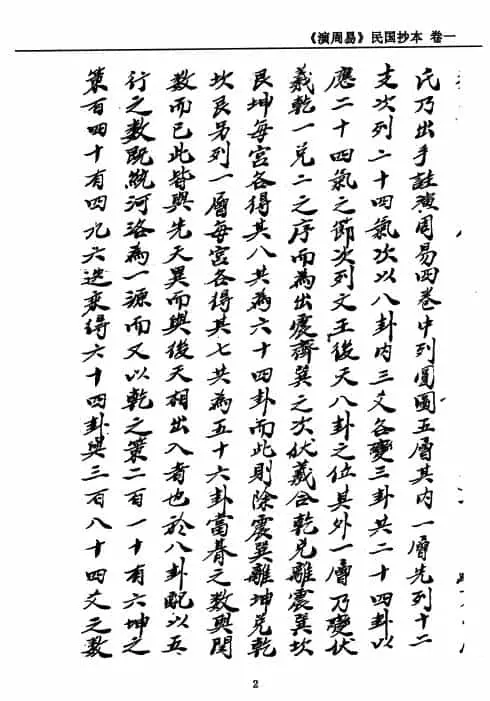 《演周易》民国抄本 卷一
氏乃出手註演周易四卷中列圓圖五層其内一層先列十二
支次列二十四氣次以八卦内三爻各變三卦共二十四卦以
應二十四氣之節次列文王後天八卦之位其外一層乃變伏
羲乾一兑二之序而為出震齊巽之次伏羲合乾兑離震巽坎
艮坤每宮各得其八共為六十四卦而此則除震巽離坤兑乾
坎艮另列一層每宮各得其七共為五十六卦當朞之數與閏
數而已此皆與先天異而與後天相出入者也於八卦配以五
行之數既統河洛為一源而又以乾之策二百一十有六坤之
策百四十有四九六迭乘得六十四卦與三百八十四爻之數
2